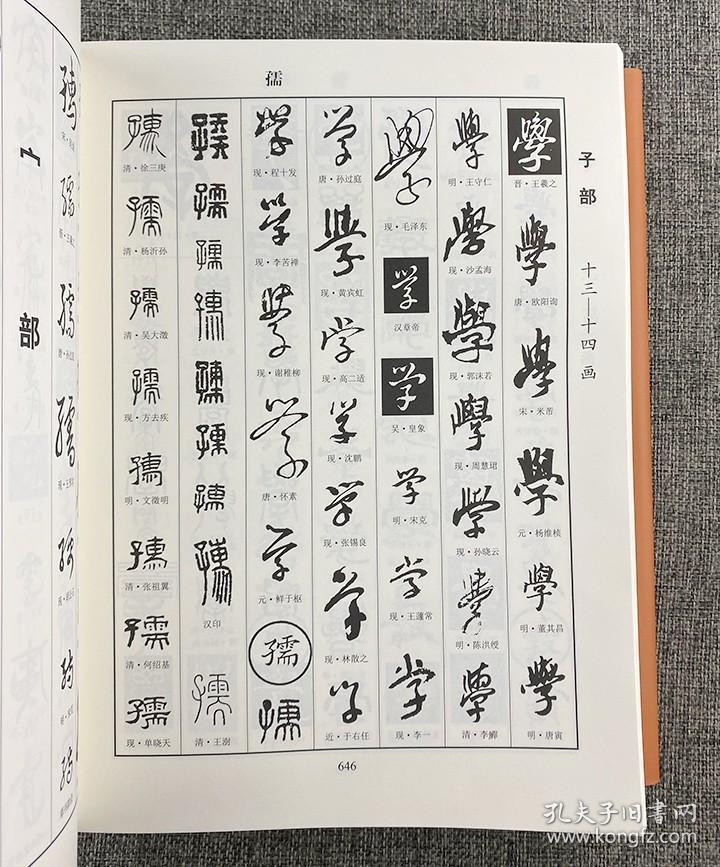 孺
子部
十三—十四画
學
晋·王羲之
學
唐·欧阳询
學
宋·米芾
學
元·杨维桢
學
明·董其昌
學
明·唐寅
學
明·王守仁
學
现·沙孟海
學
现·郭沫若
學
现·周慧珺
學
现·孙晓云
學
明·陈洪绶
學
清·李鱓
學
现·毛泽东
学
汉章帝
学
吴·皇象
学
明·宋克
学
现·王蘧常
学
现·李一
学
唐·孙过庭
學
现·黄宾虹
学
现·高二适
学
现·沈鹏
学
现·张锡良
学
现·林散之
学
近·于右任
学
现·程十发
学
现·李苦禅
学
现·谢稚柳
学
唐·怀素
学
元·鲜于枢
孺
孺
孺
孺
孺
孺
孺
孺
孺
孺
汉印
孺
清·王澍
孺
清·徐三庚
孺
清·杨沂孙
孺
清·吴大澂
孺
现·方去疾
孺
明·文徵明
孺
清·张祖翼
孺
清·何绍基
孺
现·单晓天
646
部
孔夫子旧书网
www.kongfz.com